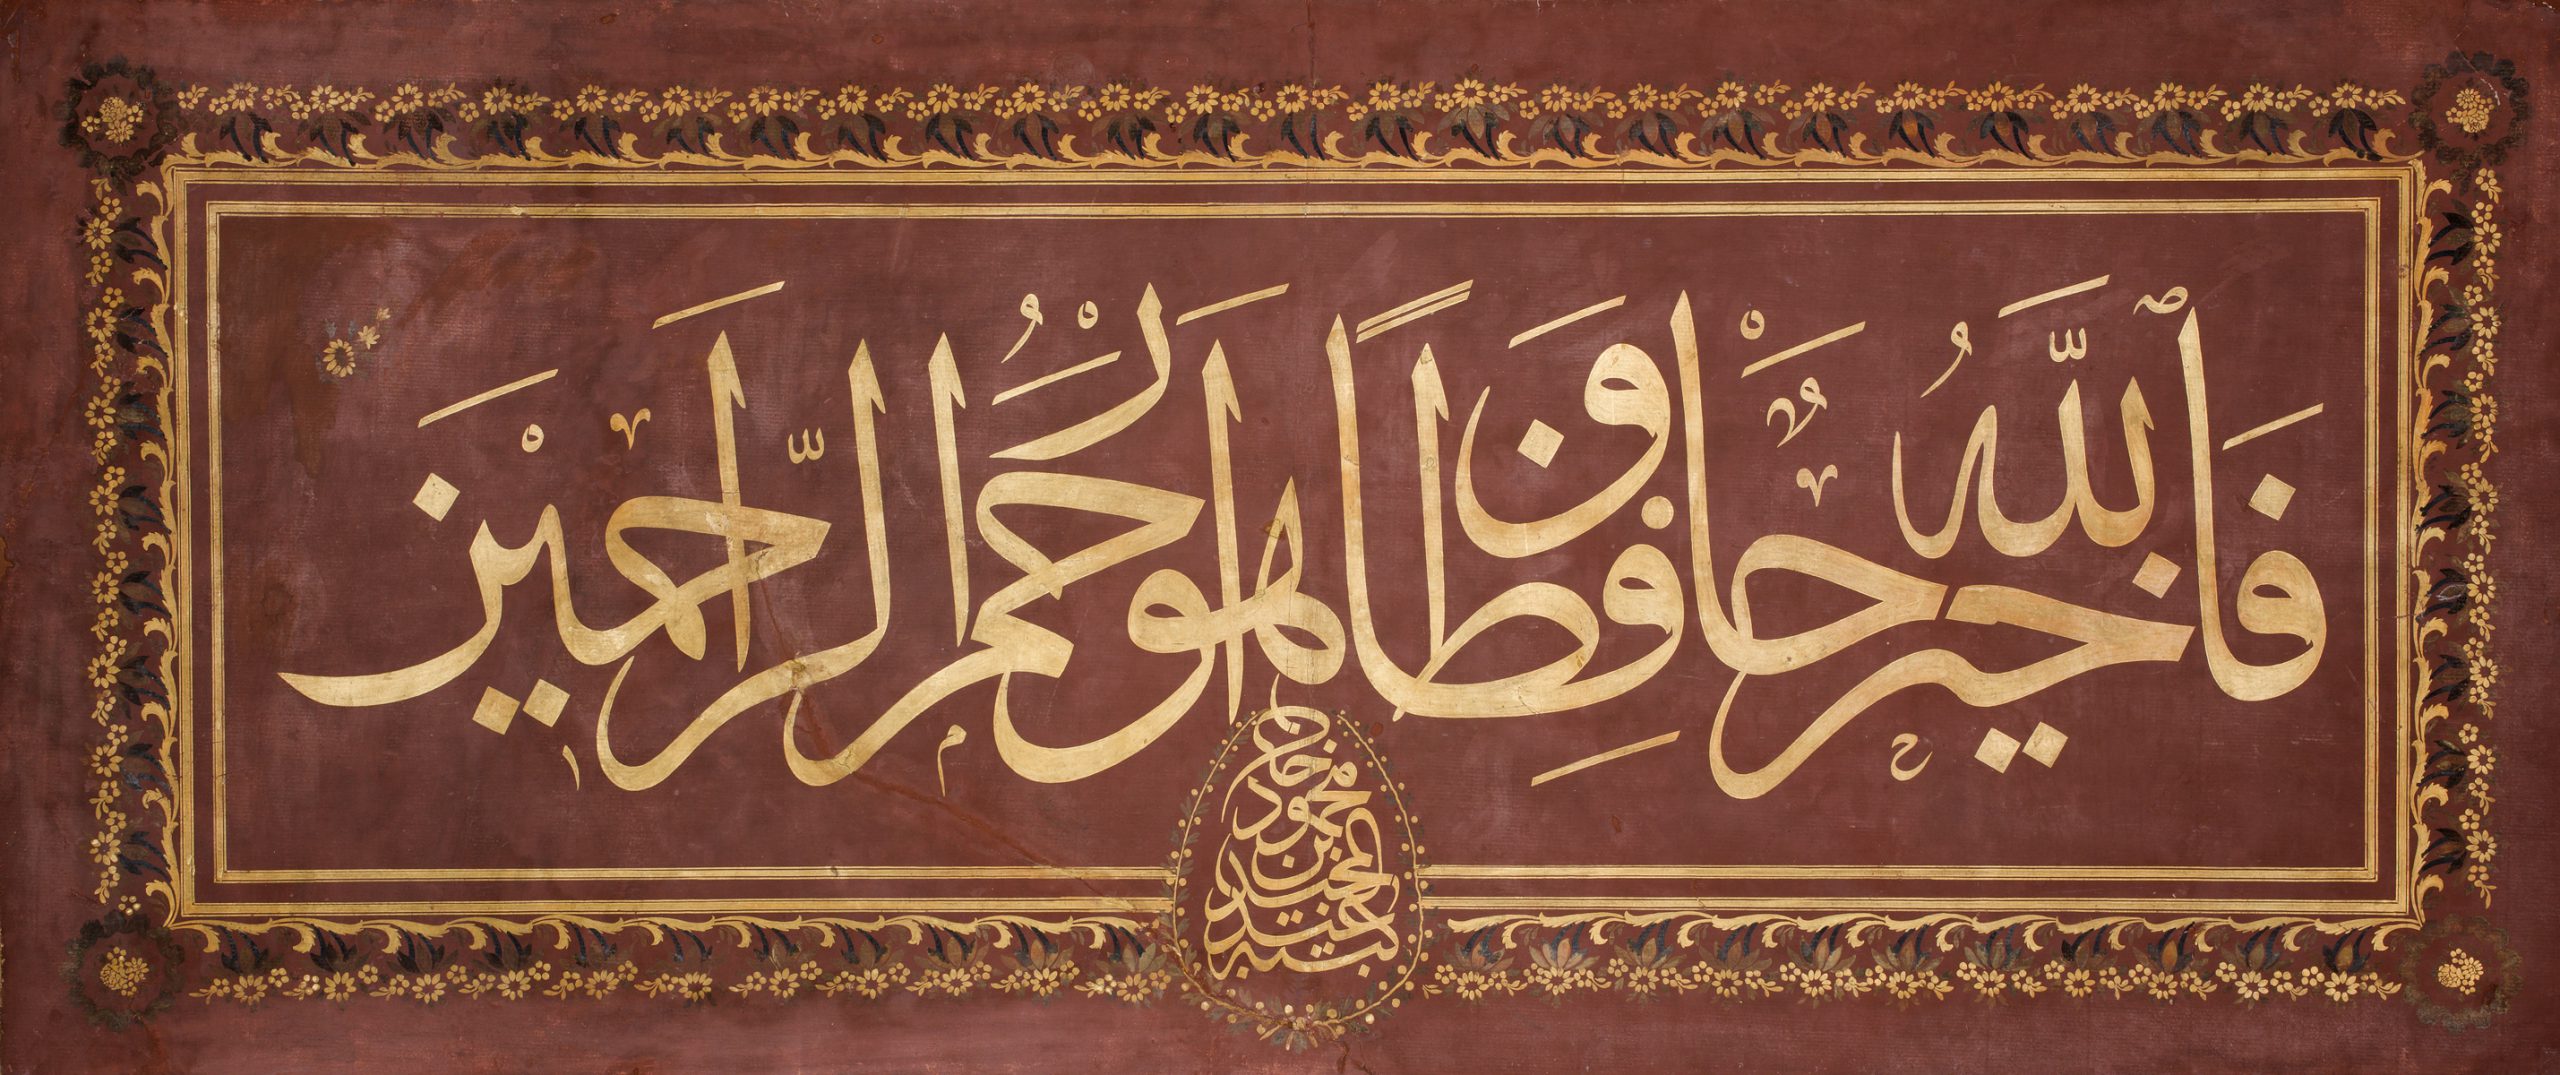 فَٱللّٰهُ خَيْرٌ حَافِظًا وَهُوَ اَرْحَمُ الرَّاحِمِيْنَ
كتبه عبد المجيد بن محمود خان